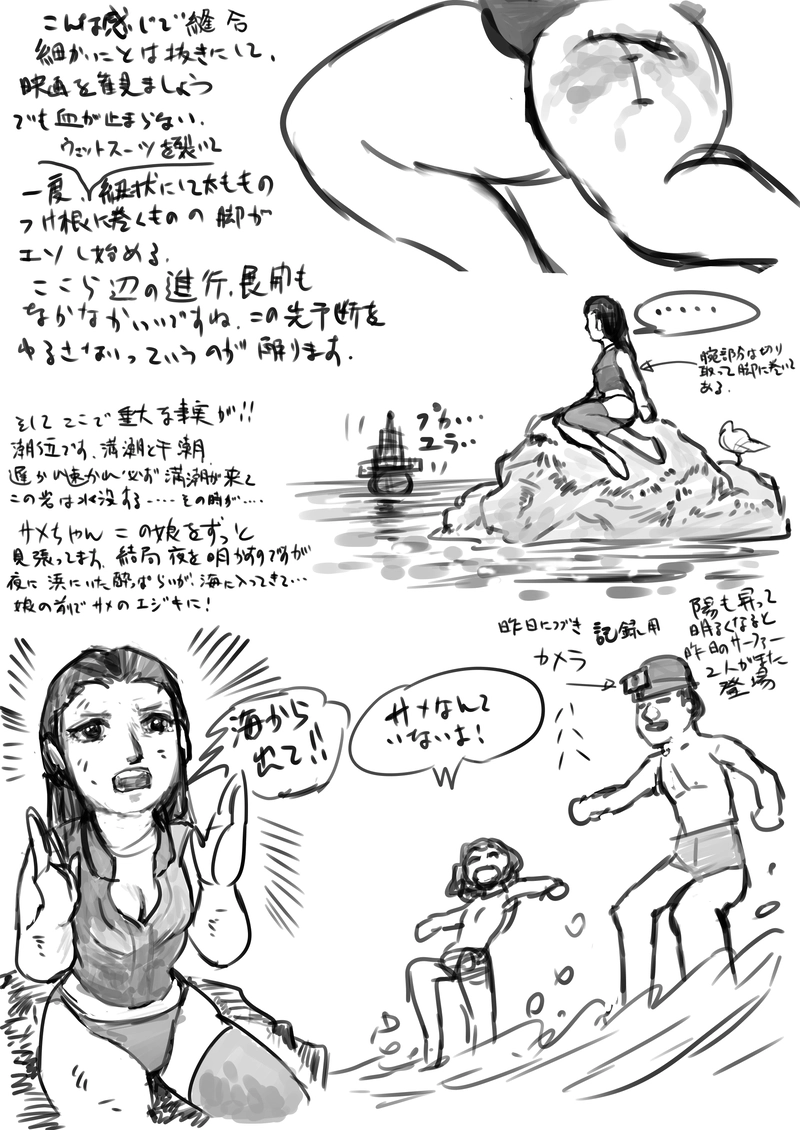 こんな感じで縫合
細かいことは抜きにして、
映画を観ましょう
でも血が止まらない。
ウェットスーツを裂いて
一度、紐状にして太ももの
つけ根に巻くものの脚が
エソし始める。
ここら辺の進行、展開も
なかなかいいですね、この先予断を
ゆるさないっていうのが限ります。
‥‥‥
腕部分は切り
取って脚に巻いて
ある.
プカ…
ユラ…
そしてここで重大な事実が!!
潮位です、満潮と干潮、
遅かれ速かれ必ず満潮が来て
この岩は水没する‥‥その時が‥‥
サメちゃんこの娘をずっと
見張ってます、結局夜を明かすのですが
夜に浜にいた酔っぱらいが、海に入ってきて…
娘の前でサメのエジキに!
陽も昇って
明るくなると
昨日のサーファー
2人がまた
登場
昨日につづき 記録用
カメラ
海から
出て!!
サメなんて
いないよ!